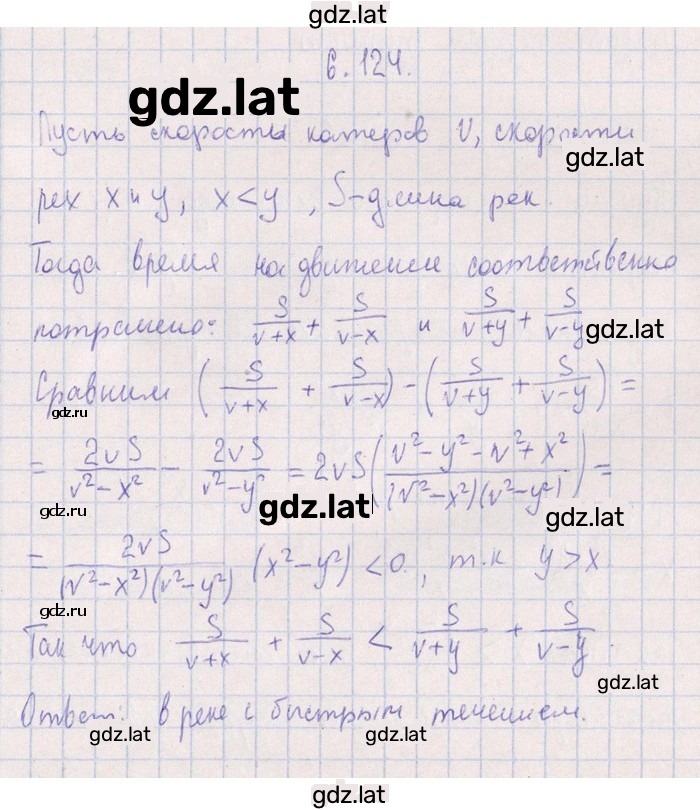 gdz.lat
6.124.
gdz.lat
Пусть скорости катеров V, скорости
gdz.lat
рек x и y, x < y, S-длина рек.
Тогда время на движение соответственно
потрачено: S/(v+x) + S/(v-x) и S/(v+y) + S/(v-y)
gdz.lat
Сравним (S/(v+x) + S/(v-x)) - (S/(v+y) + S/(v-y)) =
gdz.ru
= 2vS/(v²-x²) - 2vS/(v²-y²) = 2vS((v²-y²-v²+x²)/((v²-x²)(v²-y²))) =
gdz.ru
gdz.lat
gdz.lat
= 2vS/((v²-x²)(v²-y²)) (x²-y²) < 0, т.к y > x
gdz.lat
Так что S/(v+x) + S/(v-x) < S/(v+y) + S/(v-y).
gdz.lat
Ответ: в реке с быстрым течением.
gdz.lat
gdz.lat
gdz.lat